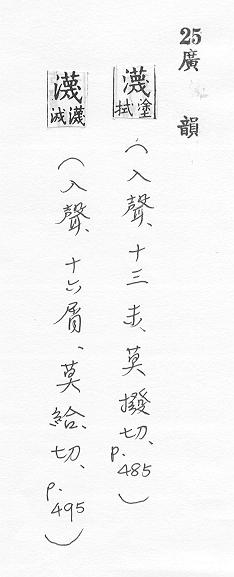 25 廣韻
瀎 塗拭 (入聲、十三末、莫撥切、p.485)
瀎 瀎泧 (入聲、十六屑、莫結切、p.495)